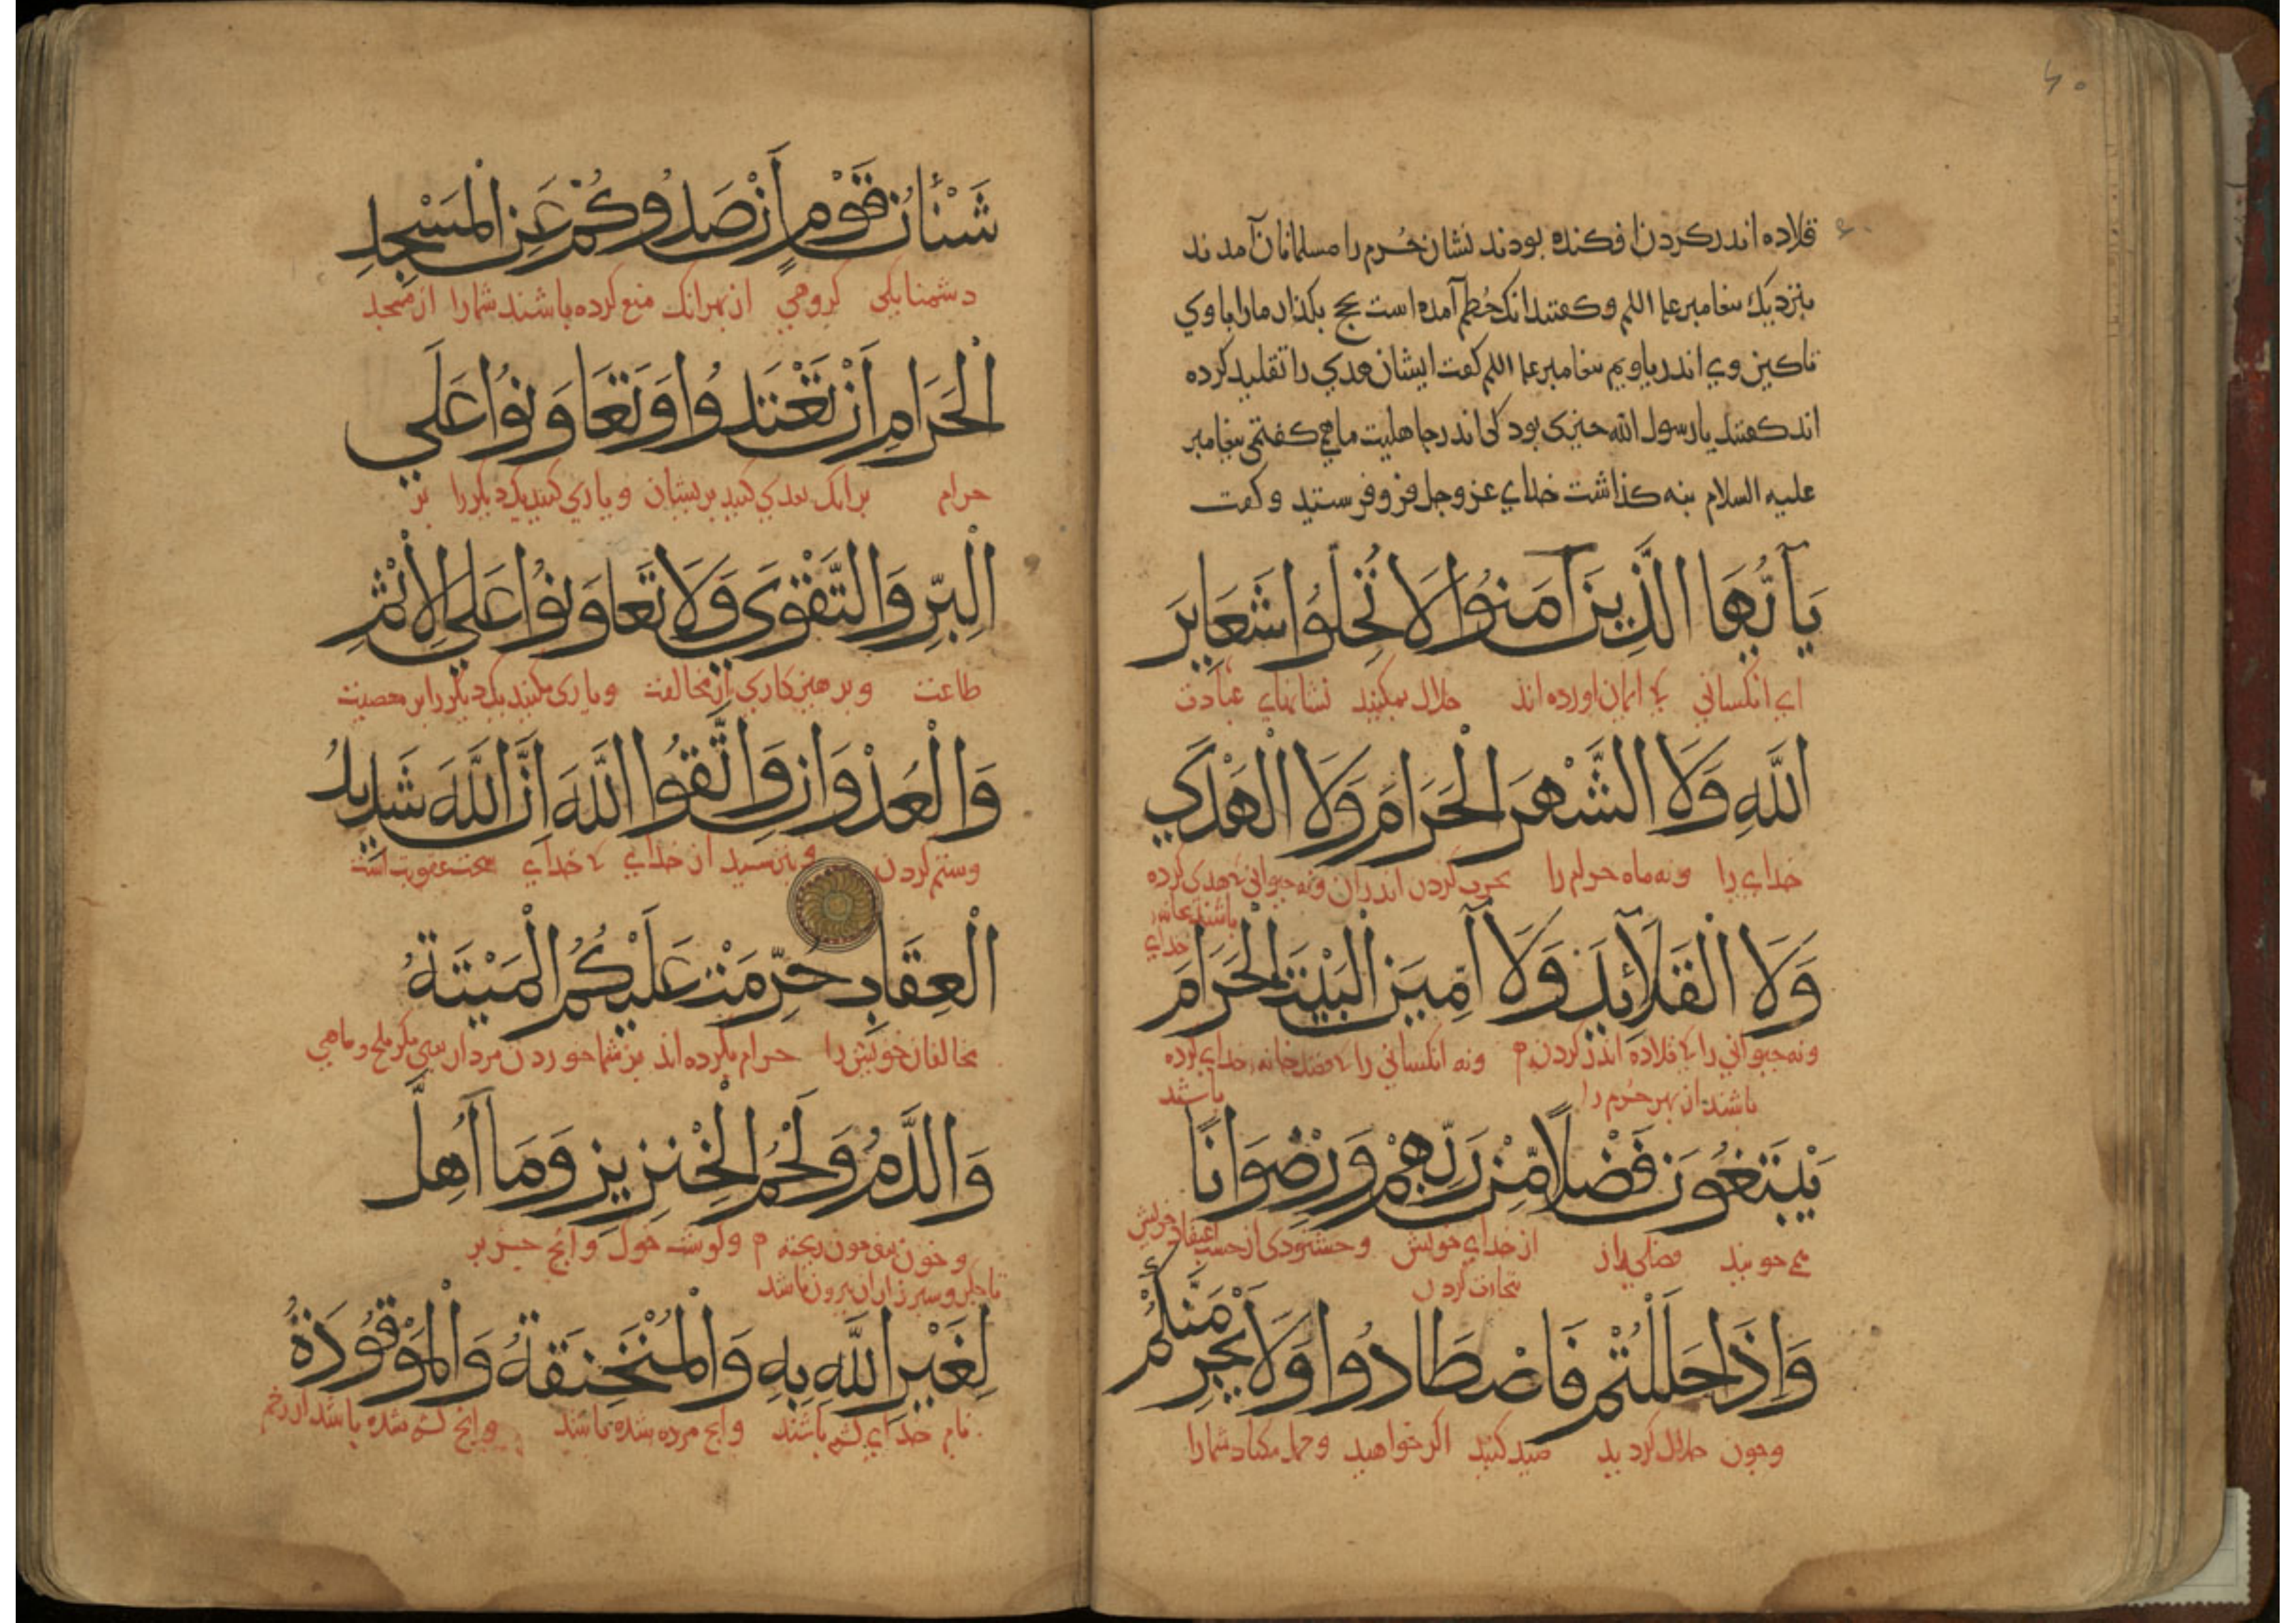 ۶۰
قلاده اندر کردن افکنده بودند نشان حُرم را مسلمانان آمدند
بنزدیك بیغامبر علیه السلم و کفتند انک حُطَم آمده است بحج بکذار ما را با وي
تا کین وي اندر یاویم بیغامبر علیه السلم کفت ایشان هدي را تقلید کرده
اند کفتند یا رسول الله چیزی بود کی اندر جاهلیت ما همی کفتمی بیغامبر
علیه السلام بنه کذاشت خدای عز وجل فرو فرستید و کفت
يَآ أَيُّهَا الَّذِينَ آمَنُوا لَا تُحِلُّوا شَعَايِرَ
اي انکسانی کی ایمان اورده اند حلال مکنید نشانهاي عبادت
اللَّهِ وَلَا الشَّهْرَ الْحَرَامَ وَلَا الْهَدْيَ
خداي را ونه ماه حرام را بحرب کردن اندران ونه حیوانی کی هدی کرده
باشند بخانه خداي
وَلَا الْقَلَآئِدَ وَلَا آمِّينَ الْبَيْتَ الْحَرَامَ
ونه حیوانی را کی قلاده اندر کردن ونه انکسانی را کی قصد خانه خداي کرده
باشند از بهر حُرم را باشند
يَبْتَغُونَ فَضْلًا مِّن رَّبِّهِمْ وَرِضْوَانًا
می جویند فضلی از خداي خویش وخشنودی از حسب اعتقاد خویش
تجارت کردن
وَإِذَا حَلَلْتُمْ فَاصْطَادُوا وَلَا يَجْرِمَنَّكُمْ
وچون حلال کردید صید کنید اکر خواهید وحمل مکناد شما را
شَنْئَانُ قَوْمٍ أَنْ صَدُّوكُمْ عَنِ الْمَسْجِدِ
دشمنایکی کروهی از بهر انک منع کرده باشند شما را از مسجد
الْحَرَامِ أَنْ تَعْتَدُوا وَتَعَاوَنُوا عَلَي
حرام بر انک تعدي کنید بریشان ویاري کنید یک دیکر را بر
الْبِرِّ وَالتَّقْوَي وَلَا تَعَاوَنُوا عَلَي الْإِثْمِ
طاعت وبرهیزکاري از مخالفت ویاری مکنید یک دیکر را بر معصیت
وَالْعُدْوَانِ وَاتَّقُوا اللَّهَ إِنَّ اللَّهَ شَدِيدُ
وستم کردن وبترسید از خداي کی خداي سخت عقوبت است
الْعِقَابِ حُرِّمَتْ عَلَيْكُمُ الْمَيْتَةُ
مخالفان خویش را حرام بکرده اند بر شما خوردن مردار مکر ملخ وماهی
وَالدَّمُ وَلَحْمُ الْخِنْزِيرِ وَمَآ أُهِلَّ
وخون ریخته وکوشت خوک وانچ جز بر
تا جکر وسبرز ازان بیرون باشد
لِغَيْرِ اللَّهِ بِهِ وَالْمُنْخَنِقَةُ وَالْمَوْقُوذَةُ
نام خداي کشته باشند وانچ مرده شده باشد وانچ کشته شده باشد از زخم